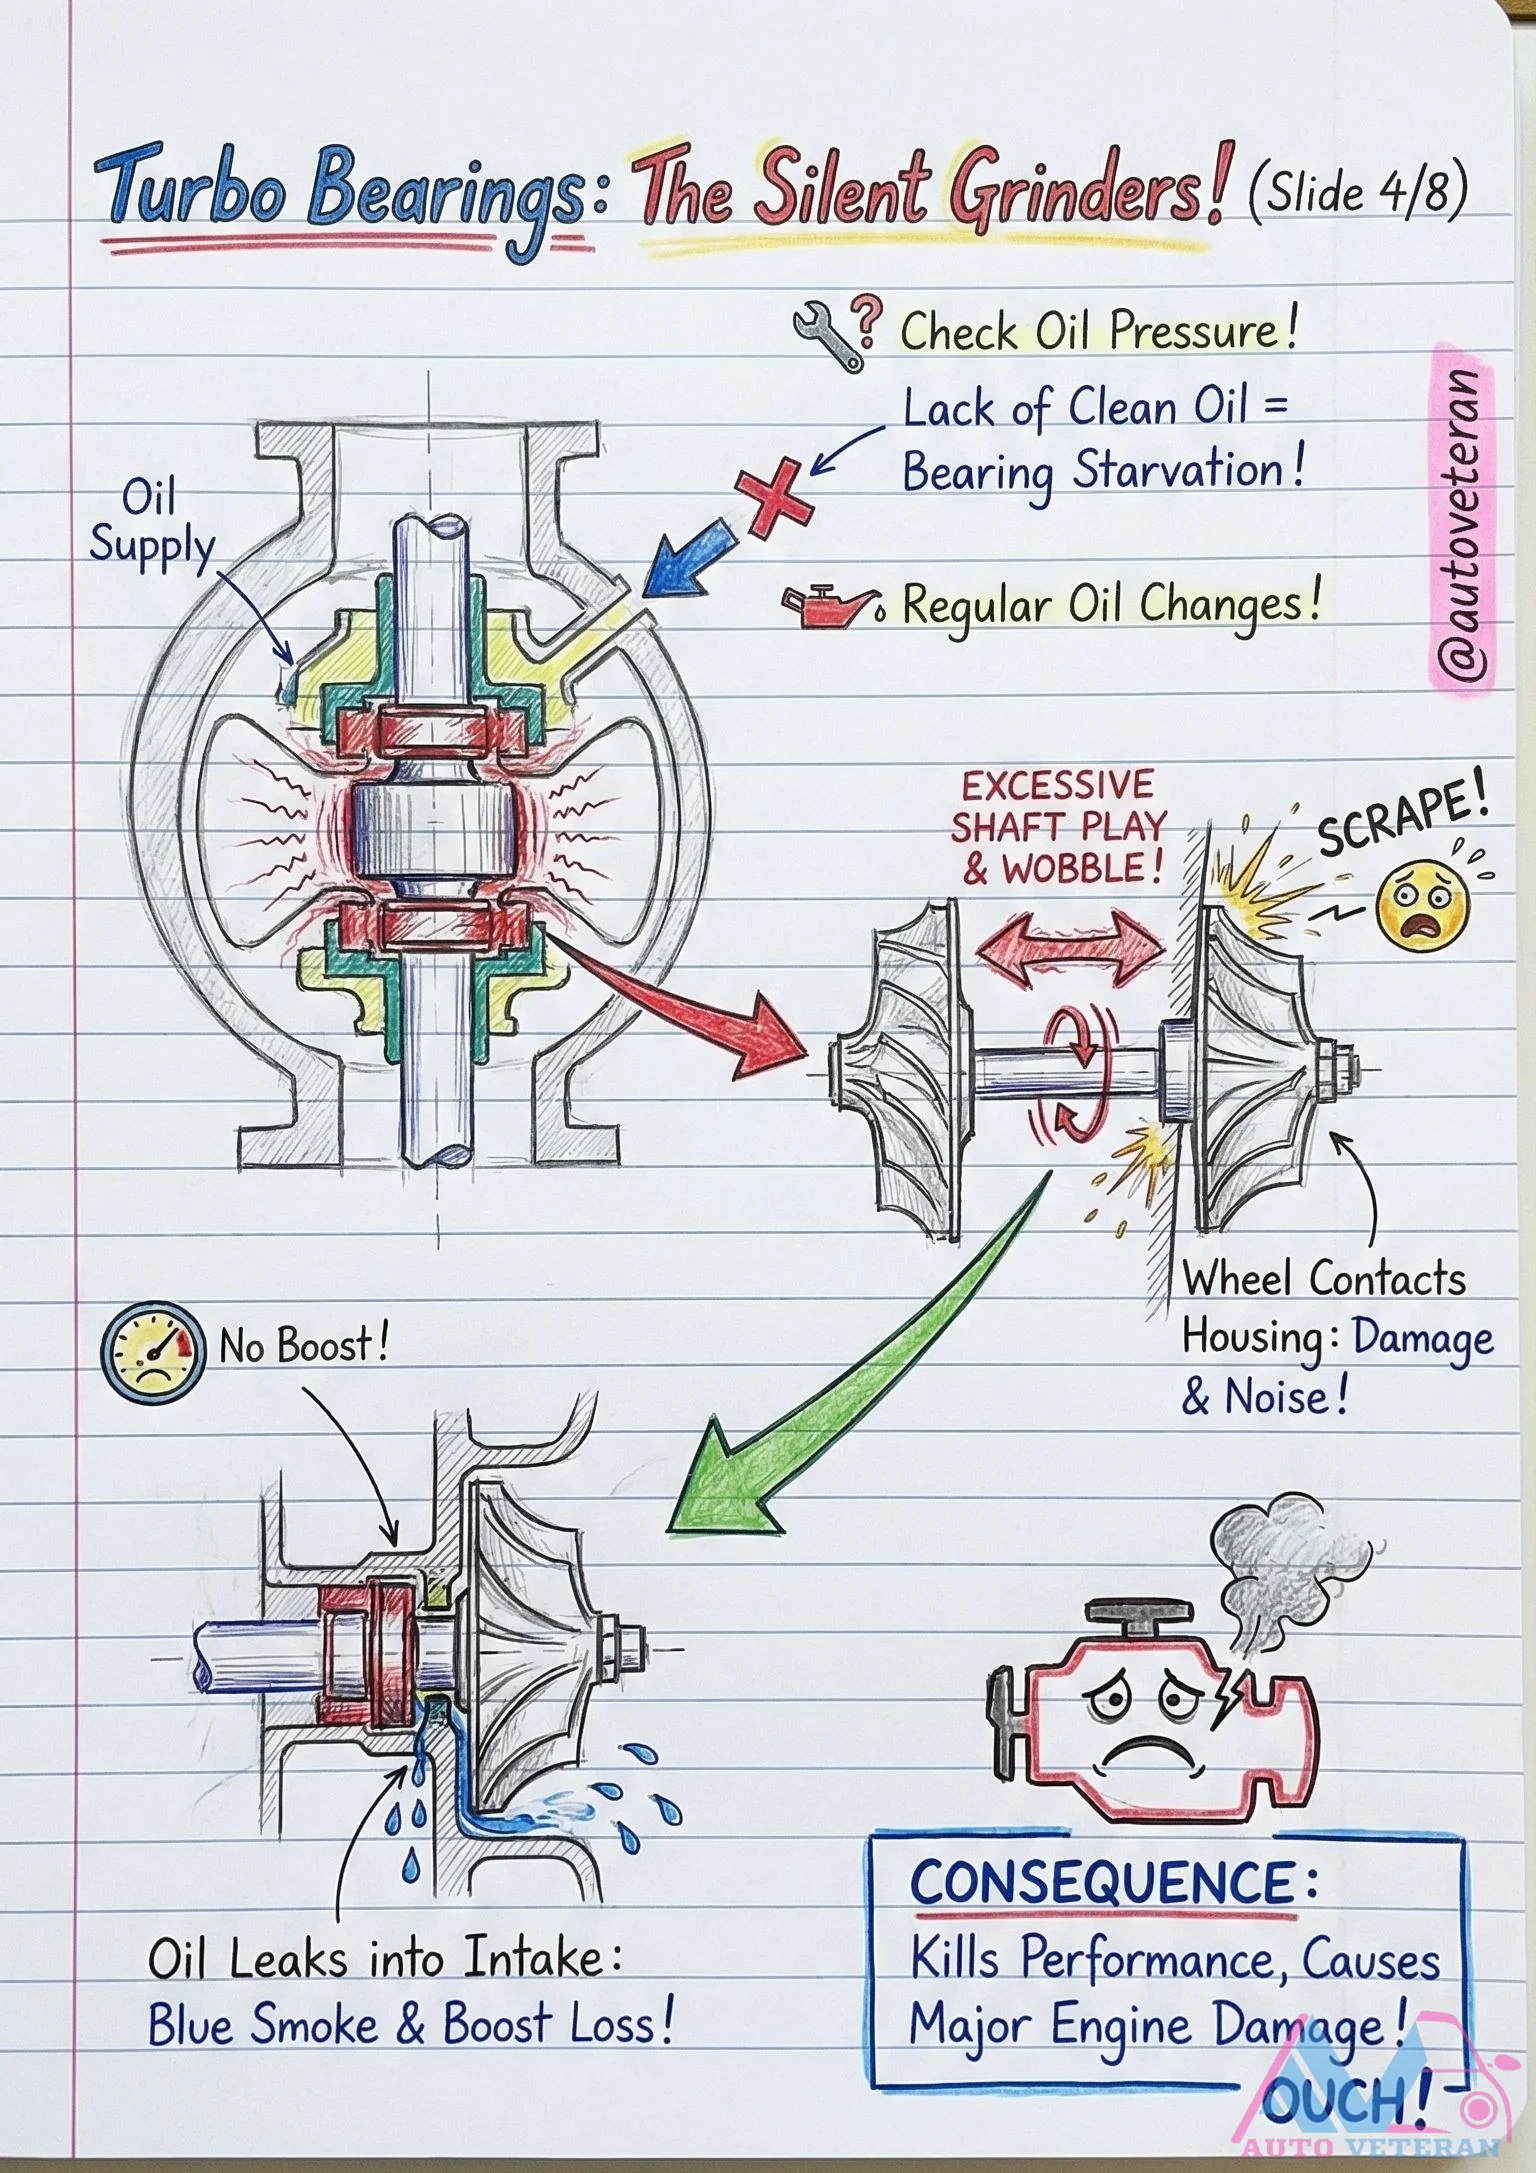 Turbo Bearings: The Silent Grinders! (Slide 4/8)
Check Oil Pressure!
Lack of Clean Oil =
Bearing Starvation!
Regular Oil Changes!
@autoveteran
Oil
Supply
EXCESSIVE
SHAFT PLAY
& WOBBLE!
SCRAPE!
Wheel Contacts
Housing: Damage
& Noise!
No Boost!
Oil Leaks into Intake:
Blue Smoke & Boost Loss!
CONSEQUENCE:
Kills Performance, Causes
Major Engine Damage!
OUCH!
AUTO VETERAN